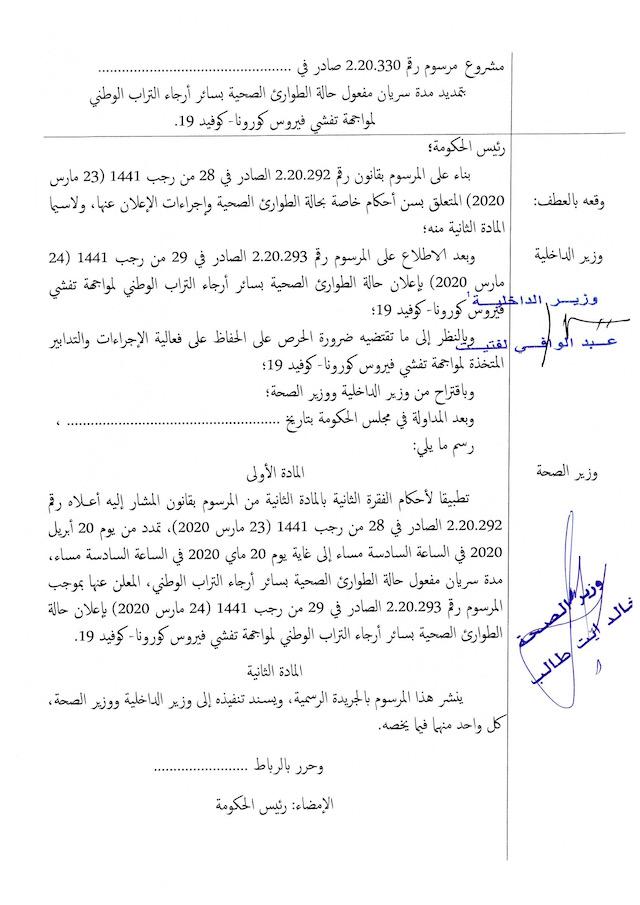 مشروع مرسوم رقم 2.20.330 صادر في ................................................
بتمديد مدة سريان مفعول حالة الطوارئ الصحية بسائر أرجاء التراب الوطني
لمواجهة تفشي فيروس كورونا- كوفيد 19.
رئيس الحكومة؛
بناء على المرسوم بقانون رقم 2.20.292 الصادر في 28 من رجب 1441 (23 مارس
2020) المتعلق بسن أحكام خاصة بحالة الطوارئ الصحية وإجراءات الإعلان عنها، ولاسيما
المادة الثانية منه؛
وبعد الاطلاع على المرسوم رقم 2.20.293 الصادر في 29 من رجب 1441 (24
مارس 2020) بإعلان حالة الطوارئ الصحية بسائر أرجاء التراب الوطني لمواجهة تفشي
فيروس كورونا- كوفيد 19؛
وبالنظر إلى ما تقتضيه ضرورة الحرص على الحفاظ على فعالية الإجراءات والتدابير
المتخذة لمواجهة تفشي فيروس كورونا- كوفيد 19؛
وباقتراح من وزير الداخلية ووزير الصحة؛
وبعد المداولة في مجلس الحكومة بتاريخ ..................................................... ،
رسم ما يلي:
المادة الأولى
تطبيقا لأحكام الفقرة الثانية بالمادة الثانية من المرسوم بقانون المشار إليه أعلاه رقم
2.20.292 الصادر في 28 من رجب 1441 (23 مارس 2020)، تمدد من يوم 20 أبريل
2020 في الساعة السادسة مساء إلى غاية يوم 20 ماي 2020 في الساعة السادسة مساء،
مدة سريان مفعول حالة الطوارئ الصحية بسائر أرجاء التراب الوطني، المعلن عنها بموجب
المرسوم رقم 2.20.293 الصادر في 29 من رجب 1441 (24 مارس 2020) بإعلان حالة
الطوارئ الصحية بسائر أرجاء التراب الوطني لمواجهة تفشي فيروس كورونا- كوفيد 19.
المادة الثانية
ينشر هذا المرسوم بالجريدة الرسمية، ويسند تنفيذه إلى وزير الداخلية ووزير الصحة،
كل واحد منهما فيما يخصه.
وحرر بالرباط .......................
الإمضاء: رئيس الحكومة
وقعه بالعطف:
وزير الداخلية
وزيـر الداخليـة
عبد الوافي لفتيت
وزير الصحة
وزير الصحة
خالد ايت طالب